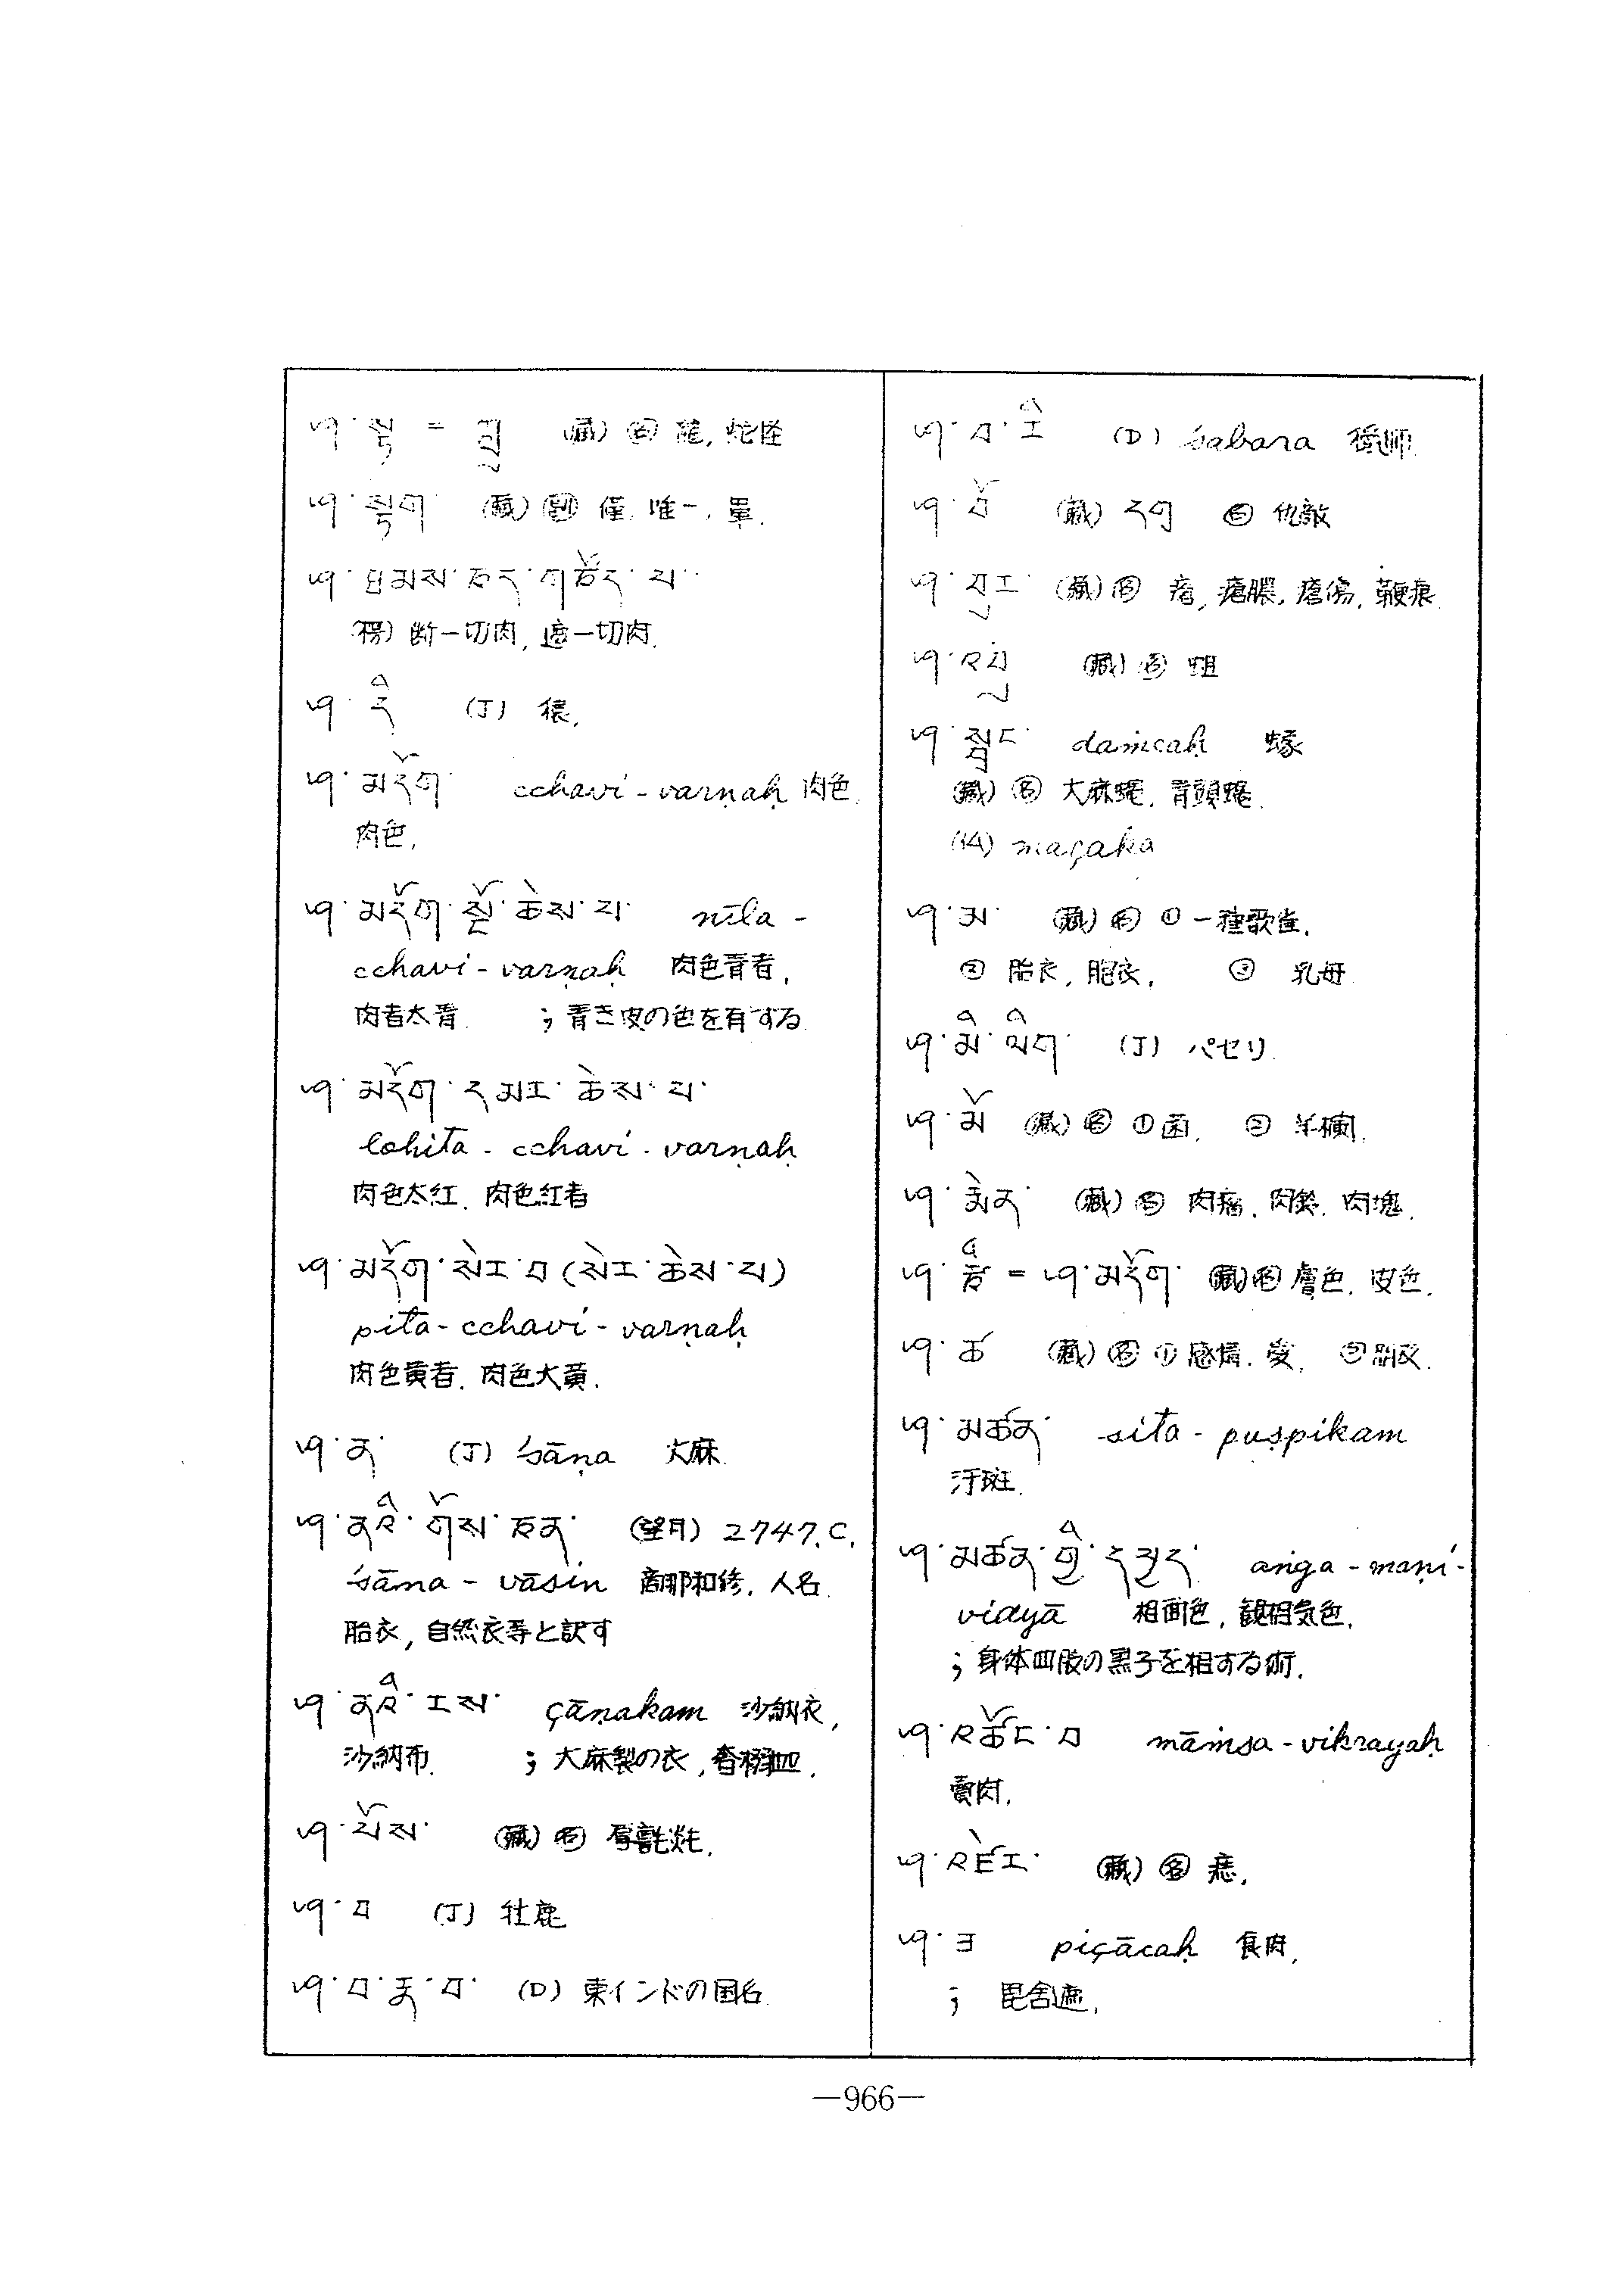 ཤ་སྟ = (藏) 名 龍, 蛇怪
ཤ་སྟག (藏) 副 僅, 唯一, 單.
ཤ་ཐམས་ཅད་གཅོད་པ་
断一切肉, 遮一切肉.
ཤ་དི (J) 猿.
ཤ་མདོག་ cchavi - varṇaḥ 肉色.
肉色.
ཤ་མདོག་སྔོ་ཆེས་པ་ nīla -
cchavi - varṇaḥ 肉色青者,
肉者太青. ; 青き皮の色を有する.
ཤ་མདོག་དམར་ཆེས་པ་
lohita - cchavi - varṇaḥ
肉色太紅. 肉色紅者
ཤ་མདོག་སེར་བ (སེར་ཆེས་པ)
pita - cchavi - varṇaḥ
肉色黄者. 肉色大黄.
ཤ་ན་ (J) śāṇa 大麻.
ཤ་ནའི་གོས་ཅན་ (望月) 2747.C.
śāna - vāsin 商那和修. 人名.
胎衣, 自然衣等と訳す
ཤ་ནའི་རས་ çāṇakam 沙納衣,
沙納布. ; 大麻製の衣,
ཤ་པོས་ (藏) 名
ཤ་བ (J) 牡鹿
ཤ་བ་ན་བ་ (D) 東インドの国名.
ཤ་བ་རི (D) śabara
ཤ་བོ (藏) དག 名 仇敵
ཤ་བུར་ (藏) 名 瘡, 瘡膿, 瘡傷, 鞭痕.
ཤ་འབུ (藏) 名 蛆
ཤ་སྦྲང་ daṁcaḥ
(藏) 名 大麻蠅. 青頭蠅.
maçaka
ཤ་མ (藏) 名 ① 一種歌雀.
② 胎衣, 胞衣. ③ 乳母.
ཤ་མི་ལིག་ (J) パセリ.
ཤ་མོ (藏) 名 ① 菌. ②
ཤ་མེན་ (藏) 名 肉瘤. 肉塊.
= ཤ་མདོག་ (藏) 名 膚色. 皮色.
ཤ་ཚ (藏) 名 ① 感情. 愛. ②
ཤ་མཚན་ sita - puṣpikam
汗斑.
ཤ་མཚན་གྱི་དཔྱད་ aṅga - maṇi -
vidyā 相面色, 観相気色.
; 身体四肢の黒子を相する術.
ཤ་འཚོང་བ māṁsa - vikrayaḥ
賣肉.
ཤ་འཛེར་ (藏) 名 痣.
ཤ་ཟ piçācaḥ 食肉.
; 毘舎遮.
—966—